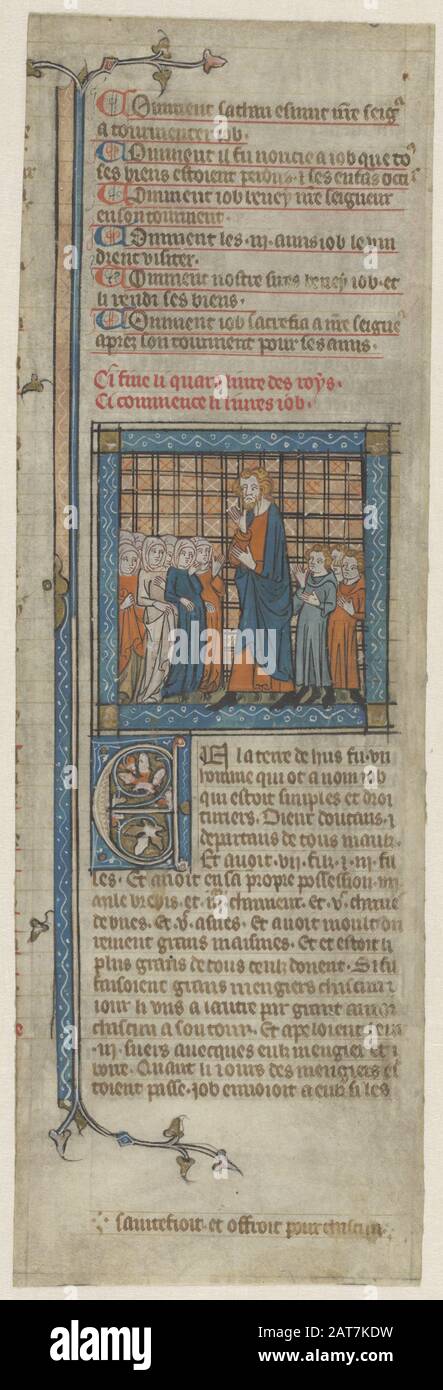 Comment sathan esmut nre seigr
a tourmenter iob.
Comment il fu noncie a iob que to9
ses biens estoient perdus. ⁊ ses enfãs occi9
Comment iob beney nre seigneur
en son tourment.
Comment les .iij. amis iob le vin
drent visiter.
Comment nostre sires beney iob. et
li rendi ses biens.
Comment iob sacrefia a nre seigner
apres son tourment pour ses amis.
Ci fine li quars liures des roys.
Ci commence li liures iob.
En la terre de hus fu .vn
homme qui ot a nom iob
qui estoit simples et droi
turiers. Dieu doutans. ⁊
departans de tous maux.
Et auoit .vij. fiux. ⁊ .iij. fil
les. Et auoit en sa propre possession .vij.
mile brebis. et .iij. chameux. Et .vc. charue
de bues. Et .vc. asnes. Et auoit moult du
rement grans maisnies. Et cis estoit li
plus grans de tous ceulx dorient. Si fil
faisoient grans mengiers chascun
iour li vns a lautre par grant amor
chascun a son tour. Et apeloient leur
.iij. suers auecques eulx mengier et
boire. Quant li iours des mengiers es
toient passe. Job enuoioit a eulx si les
saintefioit. et offroit pour chascun.
alamy
Image ID: 2AT7KDW
www.alamy.com